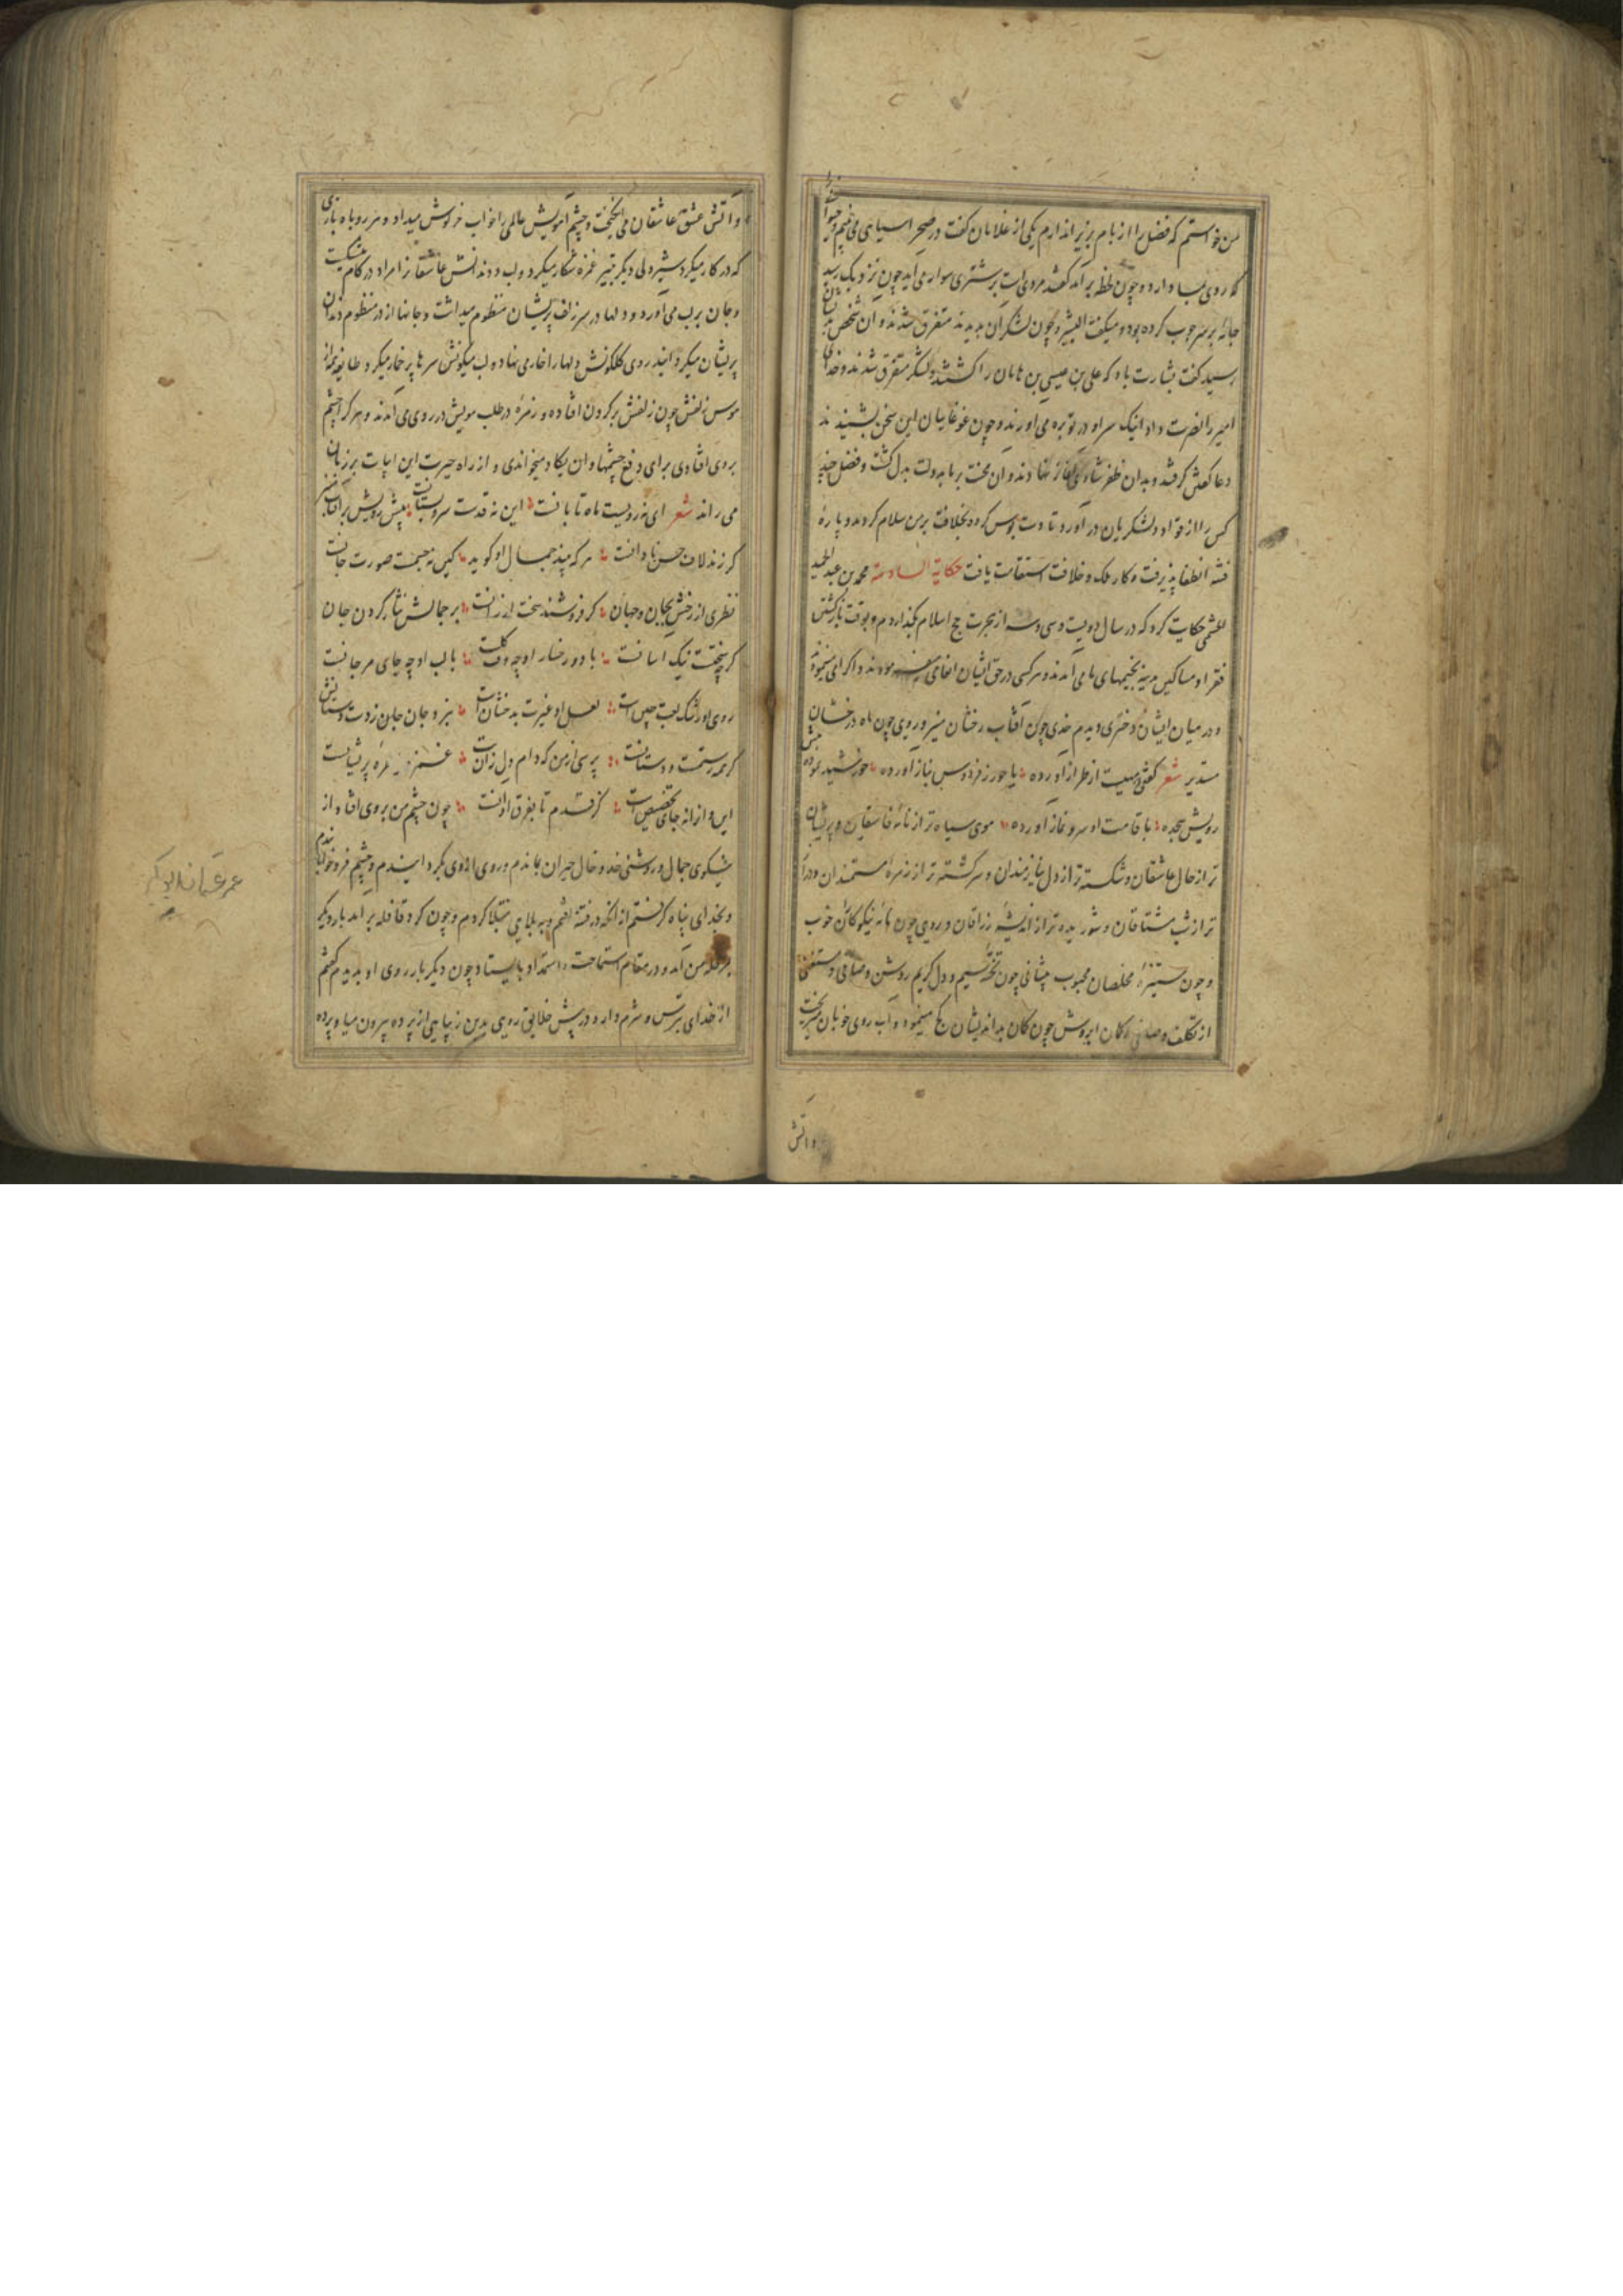 من خواستم که فضل را از بام بزیر اندازم یکی از غلامان گفت در صحرا سیاهی می بینم
که روی بما دارد و چون لحظه برآمد گفتند مردی است بر شتری سوار می آید چون نزدیک رسید
جامه بر سر چوب کرده بود و میگفت البشیر و چون لشکر آن بدیدند متفرق شدند و آن شخص
برسید گفت بشارت باد که علی بن عیسی بن ماهان را کشتند و لشکر متفرق شدند و خدای
امیر را نصرت داد اینک سر او در توبره می آورند و چون غوغاییان این سخن بشنیدند
دعا گفتن گرفتند و بدان ظفر شادی آغاز نهادند و آن محنت بر ما بدولت بدل گشت و فضل چند
کس را از قواد و لشکریان در آورد تا دست بوس کرده بخلافت بر من سلام کردند و باره
فتنه انطفا پذیرفت و کار ملک و خلافت استقامت یافت حکایة السادسة محمد بن عبد الحمید
حکایت کرد که در سال دویست و سی و سه از هجرت حج اسلام بگذاردم و بوقت بازگشتن
فقرا و مساکین مدینه بخیمهای ما می آمدند و هر کسی در حق ایشان انعامی میفرمودند و اکرامی مینمود
و در میان ایشان دختری دیدم خدی چون آفتاب رخشان منیر و رویی چون ماه درخشان
مستدیر شعر گفتی که بتیست از طراز آورده یا حور ز فردوس بناز آورده خورشید نموده پیش
رویش سجده با قامت او سرو نماز آورده موی سیاه تر از نامه فاسقان و پریشان
تر از حال عاشقان و شکسته تر از دل نیازمندان و سرگشته تر از زمره مستمندان و دراز
تر از شب مشتاقان و شوریده تر از اندیشه زراقان و رویی چون نامه نیکوکاران خوب
و چون ستیزه مخلصان محبوب پیشانی چون تخته سیم و دل کریم روشن و صافی و مستغنی
از تکلف کمان ابروش چون کمان بداندیشان کج مینمود و آب روی خوبان میریخت
واتش
و آتش عشق عاشقان می انگیخت و چشم آهویش عالمی را خواب خرگوش میداد و هر روباه بازی
که در کار میکرد شیردلی دیگر بتیر غمزه شکار میکرد و لب و دندانش عاشقانرا مراد در کام میشکست
و جان بر لب می آورد و دلها در سر زلف پریشان منظوم میداشت و جانها از در منظوم دندان
پریشان میکردانید روی گلگونش دلها را خار می نهاد و لب میگونش سرها پر خمار میکرد و طایفه از
هوس زلفش چون زلفش بر گردن افتاده و زمره در طلب مویش در روی می آمدند و هر کرا چشم
بر وی افتادی برای دفع چشمها وان یکاد میخواندی و از راه حیرت این ابیات بر زبان
می راند شعر ای نه رویست ماه تابانست این نه قدست سرو بستانست پیش رویش بر آفتاب منیر
گر زند لاف حسن تاوانست هر که بیند جمال او گوید کین نه جسمت صورت جانست
نظری از رخش بجان و جهان گر فروشند سخت ارزانست بر جمالش نثار کردن جان
گرچه سختست نیک آسانست با دو رخسار او چه وقت گلست با لب او چه جای مرجانست
روی او رشک لعبت چین است لعل او غیرت بدخشان است
گر همه رستمست و دستانست پرسی از من که دام دل زان است
این دل از آنه جای تخصیص است کز قدم تا بفرق او آنست چون چشم من بر وی افتاد از
نیکوی جمال و روشنی خد و خال حیران بماندم و روی از وی بگردانیدم و چشم فرو خوابانیدم
و بخدای پناه گرفتم از انکه در فتنه افتم و ببلایی مبتلا گردم و چون گرد قافله برآمد بار دیگر
من آمد و در مقام استماحت و استمداد بایستاد چون دیگر بار روی او بدیدم گفتم
از خدای بترس و شرم دار و در پیش خلایق روی بدین زیبایی از پرده بیرون میاور پرده